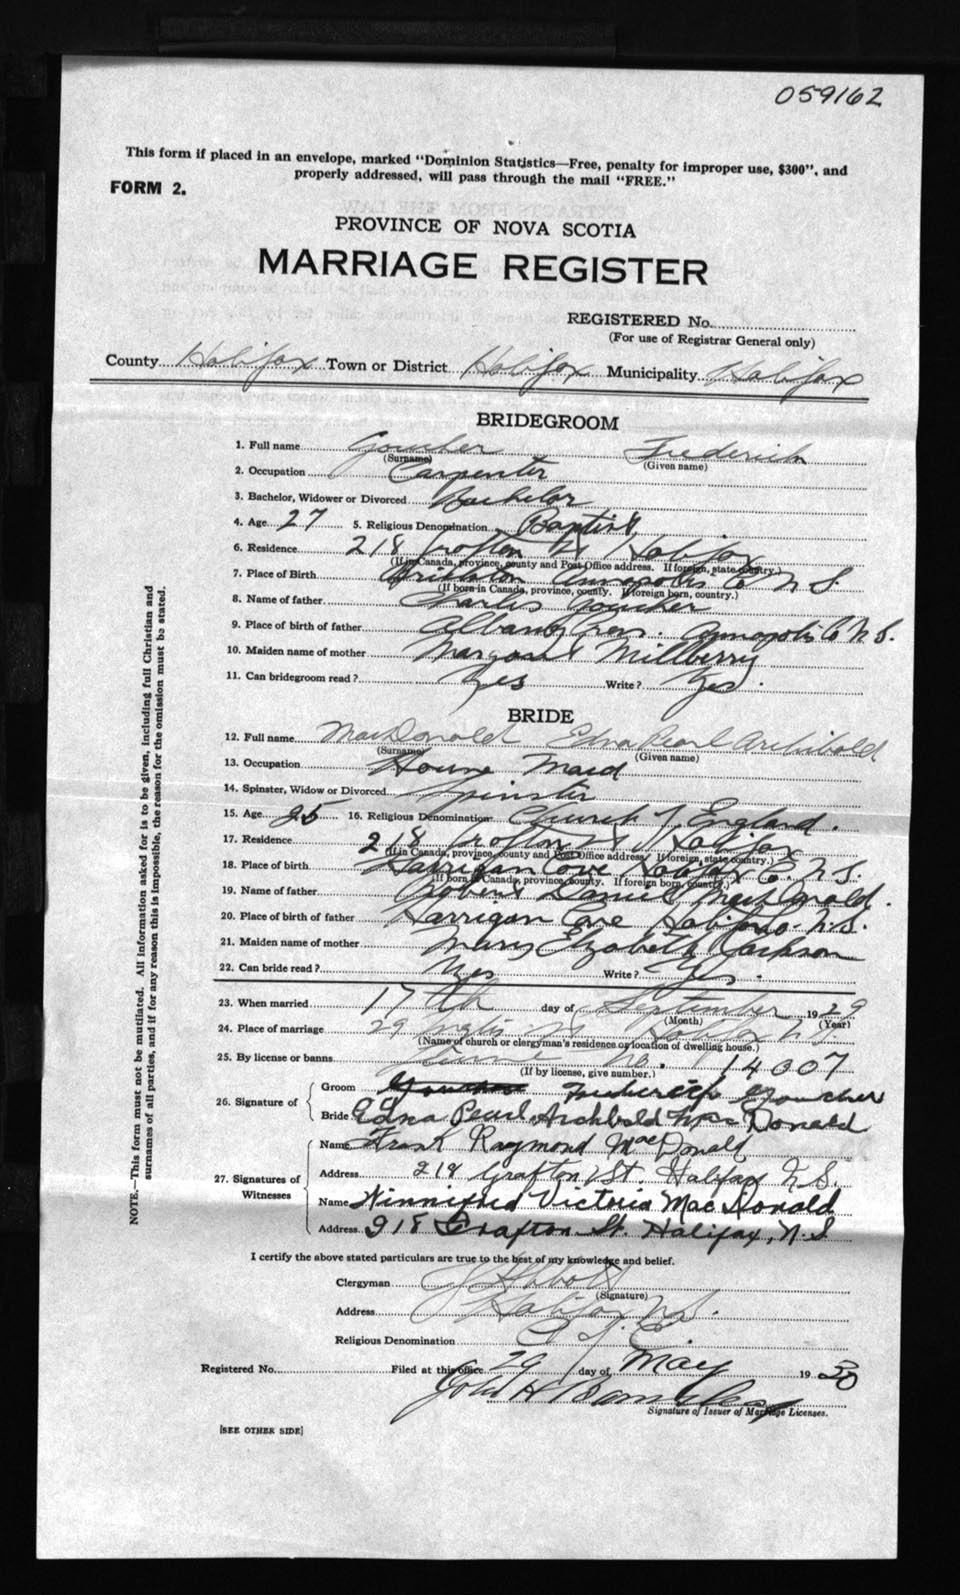 059162
This form if placed in an envelope, marked "Dominion Statistics—Free, penalty for improper use, $300", and
properly addressed, will pass through the mail "FREE."
FORM 2.
PROVINCE OF NOVA SCOTIA
MARRIAGE REGISTER
REGISTERED No.
(For use of Registrar General only)
County Halifax Town or District Halifax Municipality Halifax
BRIDEGROOM
1. Full name Goucher Frederick
(Surname) (Given name)
2. Occupation Carpenter
3. Bachelor, Widower or Divorced Bachelor
4. Age 27 5. Religious Denomination Baptist
6. Residence 218 Grafton St Halifax
(If in Canada, province, county and Post Office address. If foreign, state country.)
7. Place of Birth Annapolis Co N S.
(If born in Canada, province, county. If foreign born, country.)
8. Name of father Charles Goucher
9. Place of birth of father Albany Annapolis Co N.S.
10. Maiden name of mother Margaret Millberry
11. Can bridegroom read? Yes Write? Yes.
BRIDE
12. Full name MacDonald Edna Pearl Archibald
(Surname) (Given name)
13. Occupation House Maid
14. Spinster, Widow or Divorced Spinster
15. Age 25 16. Religious Denomination Church of England.
17. Residence 218 Grafton St Halifax
(If in Canada, province, county and Post Office address. If foreign, state country.)
18. Place of birth Harrigan Cove Halifax Co. N.S.
(If born in Canada, province, county. If foreign born, country.)
19. Name of father Robert Daniel MacDonald.
20. Place of birth of father Harrigan Cove Halifax N.S.
21. Maiden name of mother Mary Elizabeth Jackson
22. Can bride read? Yes Write? Yes.
23. When married 17th day of September 1929
(Month) (Year)
24. Place of marriage 29 Inglis St Halifax N.S.
(Name of church or clergyman's residence or location of dwelling house.)
25. By license or banns No. 14007
(If by license, give number.)
26. Signature of Groom Frederick Goucher
Bride Edna Pearl Archibald MacDonald
27. Signatures of Witnesses
Name Frank Raymond MacDonald
Address 218 Grafton St. Halifax N.S.
Name Winnifred Victoria MacDonald
Address 218 Grafton St. Halifax, N.S
I certify the above stated particulars are true to the best of my knowledge and belief.
Clergyman
(Signature)
Address Halifax N.S.
Religious Denomination C of E.
Registered No. Filed at this office 29 day of May 1930
John H
Signature of Issuer of Marriage Licenses.
[SEE OTHER SIDE]
NOTE.—This form must not be mutilated. All information asked for is to be given, including full Christian and
surnames of all parties, and if for any reason this is impossible, the reason for the omission must be stated.